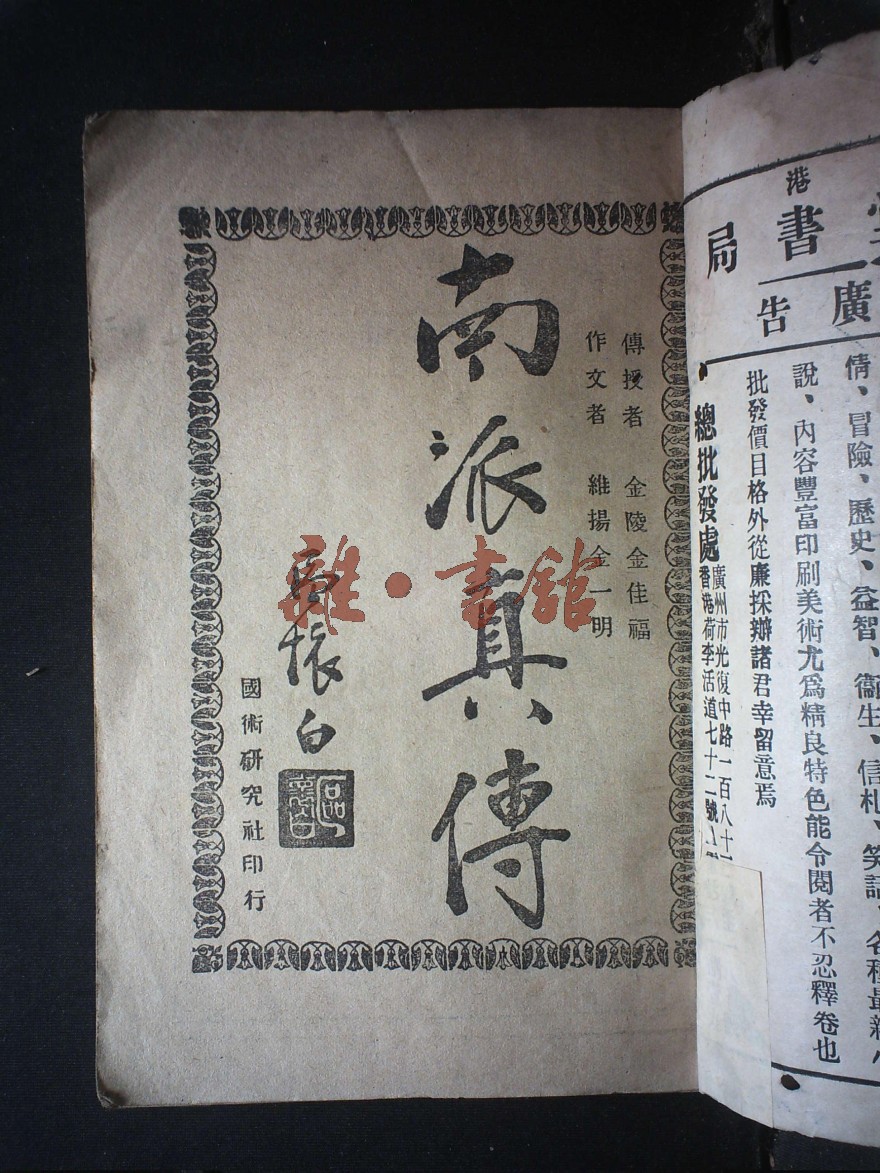 南派真傳
傳授者 金陵金佳福
作文者 維揚金一明
懷白
國術研究社印行
雜·書館
港
書局
廣告
情、冒險、歷史、益智、衞生、信札、笑話、各種最新小
說、內容豐富印刷美術尤爲精良特色能令閱者不忍釋卷也
批發價目格外從廉採辦諸君幸留意焉
總批發處
廣州市光復中路一百八十
香港荷李活道七十二號